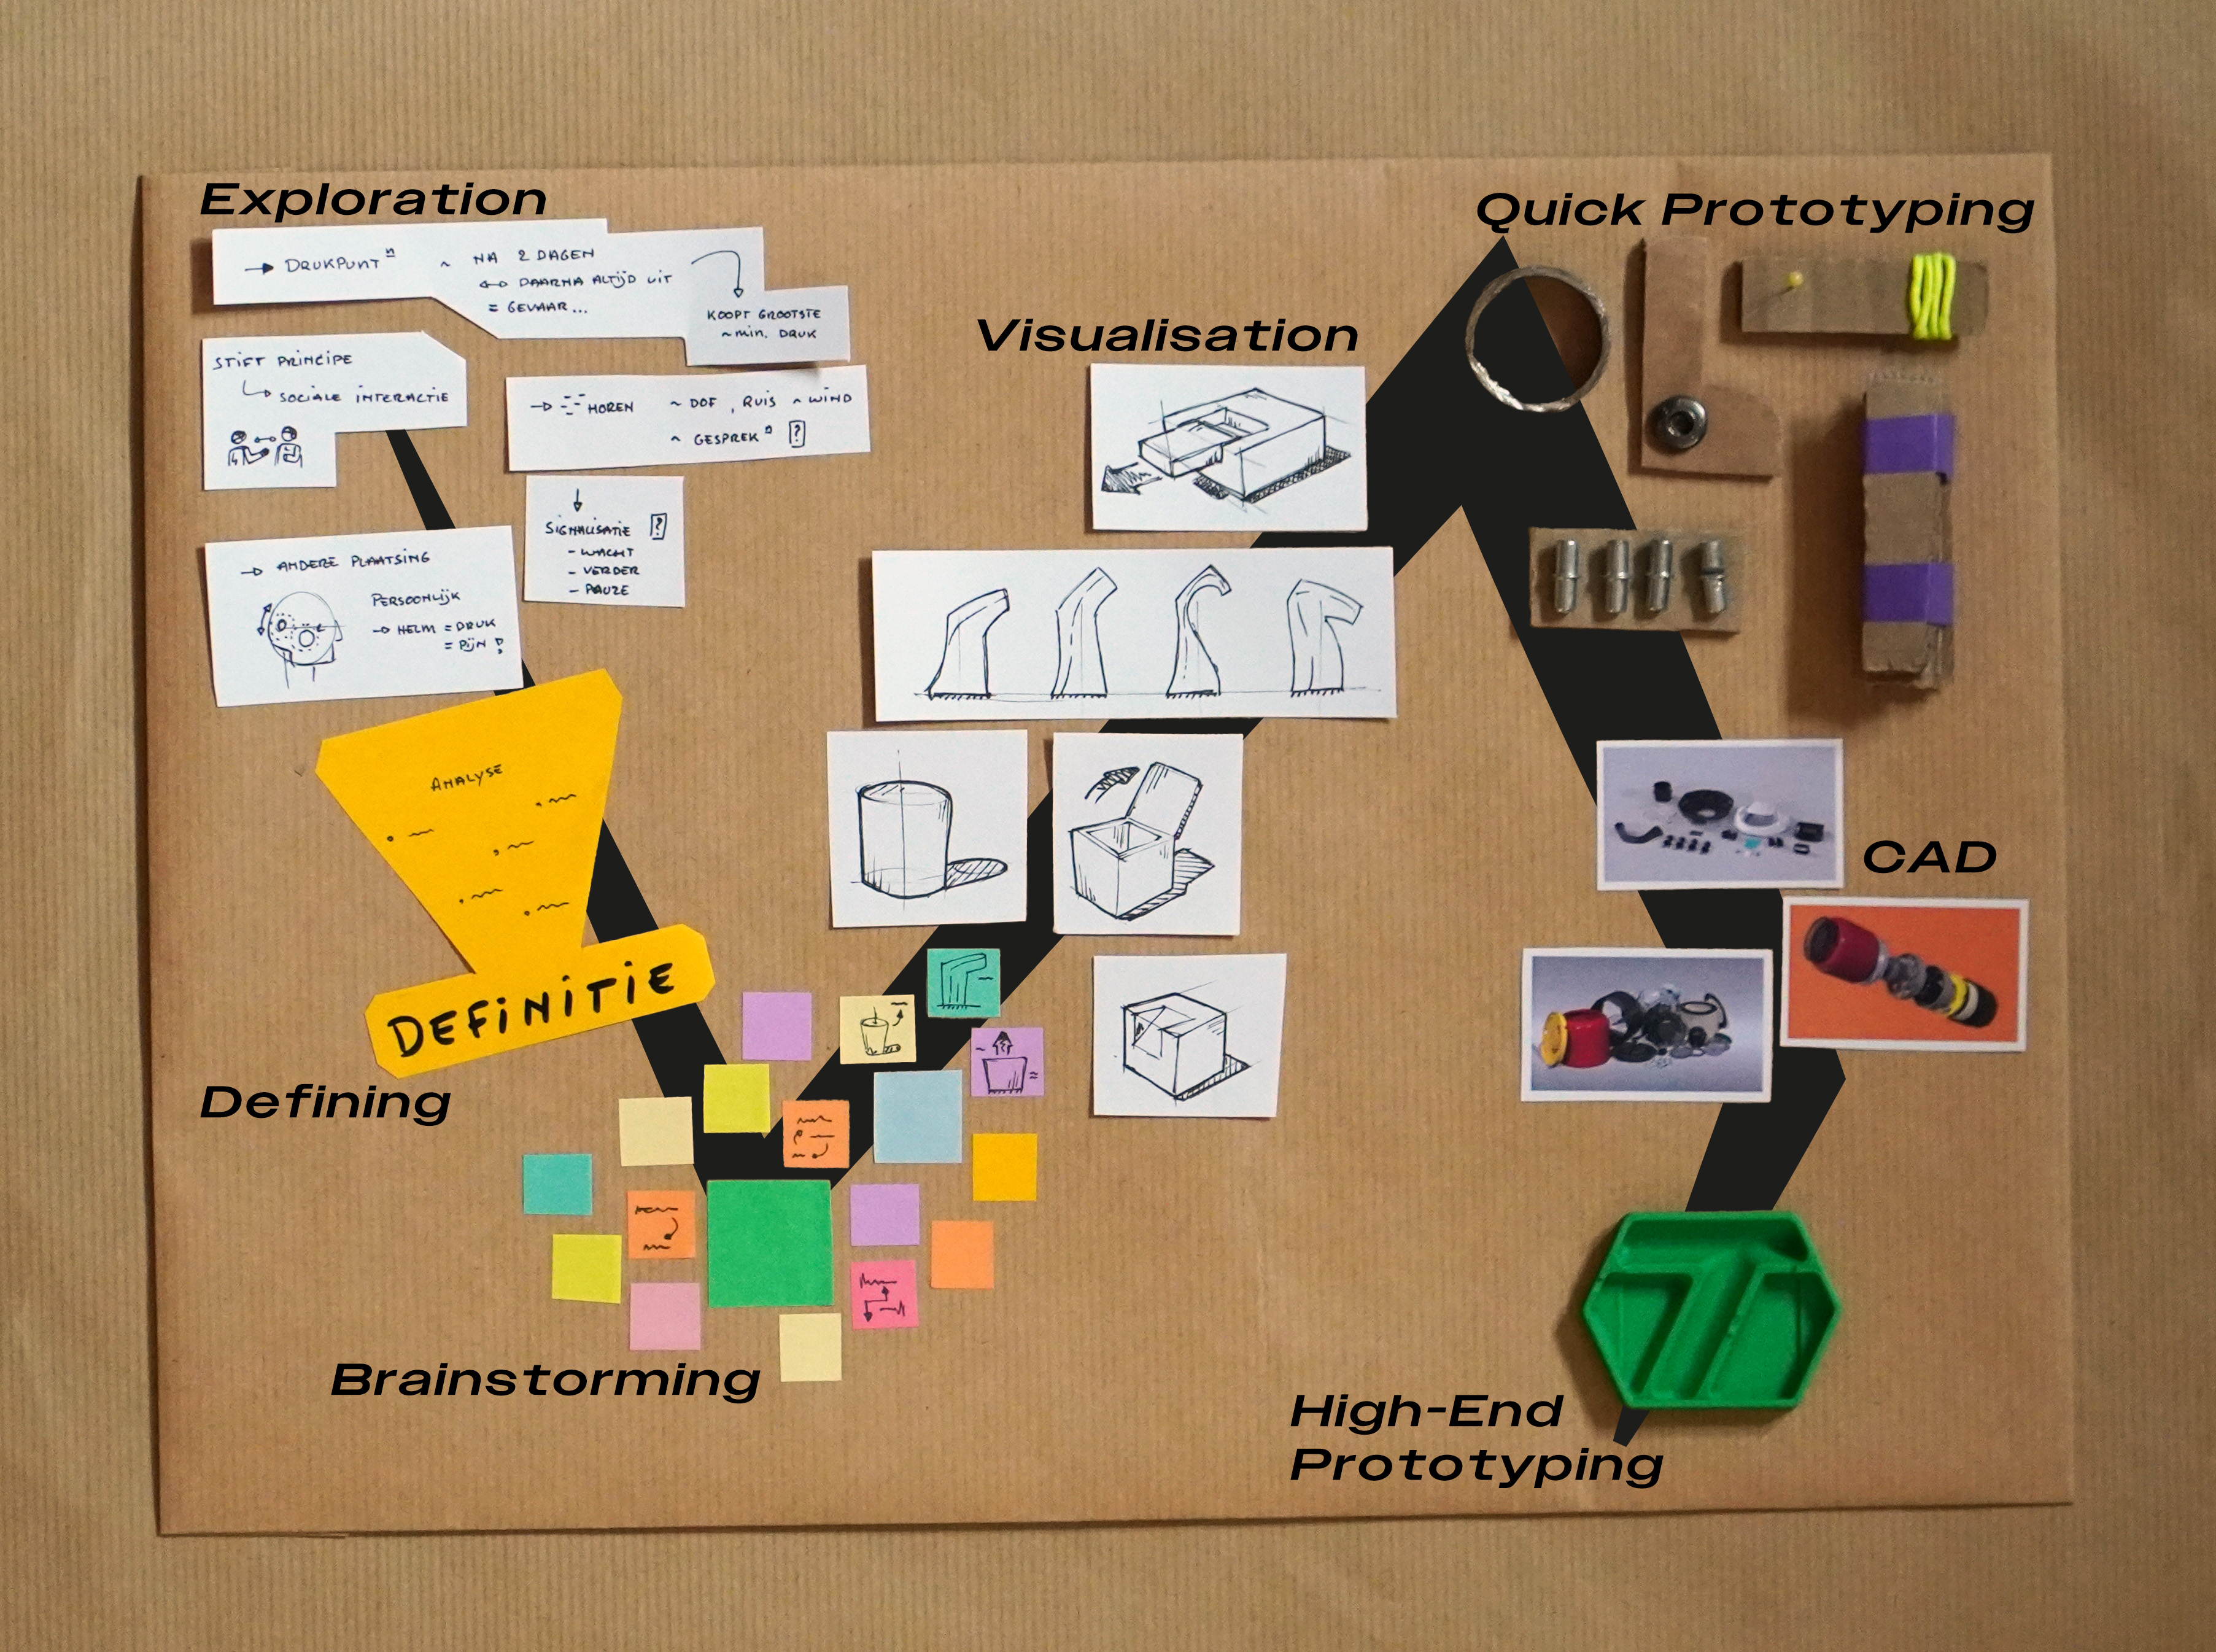 Exploration
→ DRUKPUNTⁿ ~ NA 2 DAGEN
↔ DAARNA ALTIJD UIT
= GEVAAR...
KOOPT GROOTSTE
~ min. DRUK
STIFT PRINCIPE
↳ SOCIALE INTERACTIE
→ HOREN ~ DOF, RUIS ~ WIND
~ GESPREKⁿ ?
↓
SIGNALISATIE ?
- WACHT
- VERDER
- PAUZE
→ ANDERE PLAATSING
PERSOONLIJK
→ HELM = DRUK
= PIJN !
ANALYSE
DEFINITIE
Defining
Brainstorming
Visualisation
Quick Prototyping
CAD
High-End
Prototyping